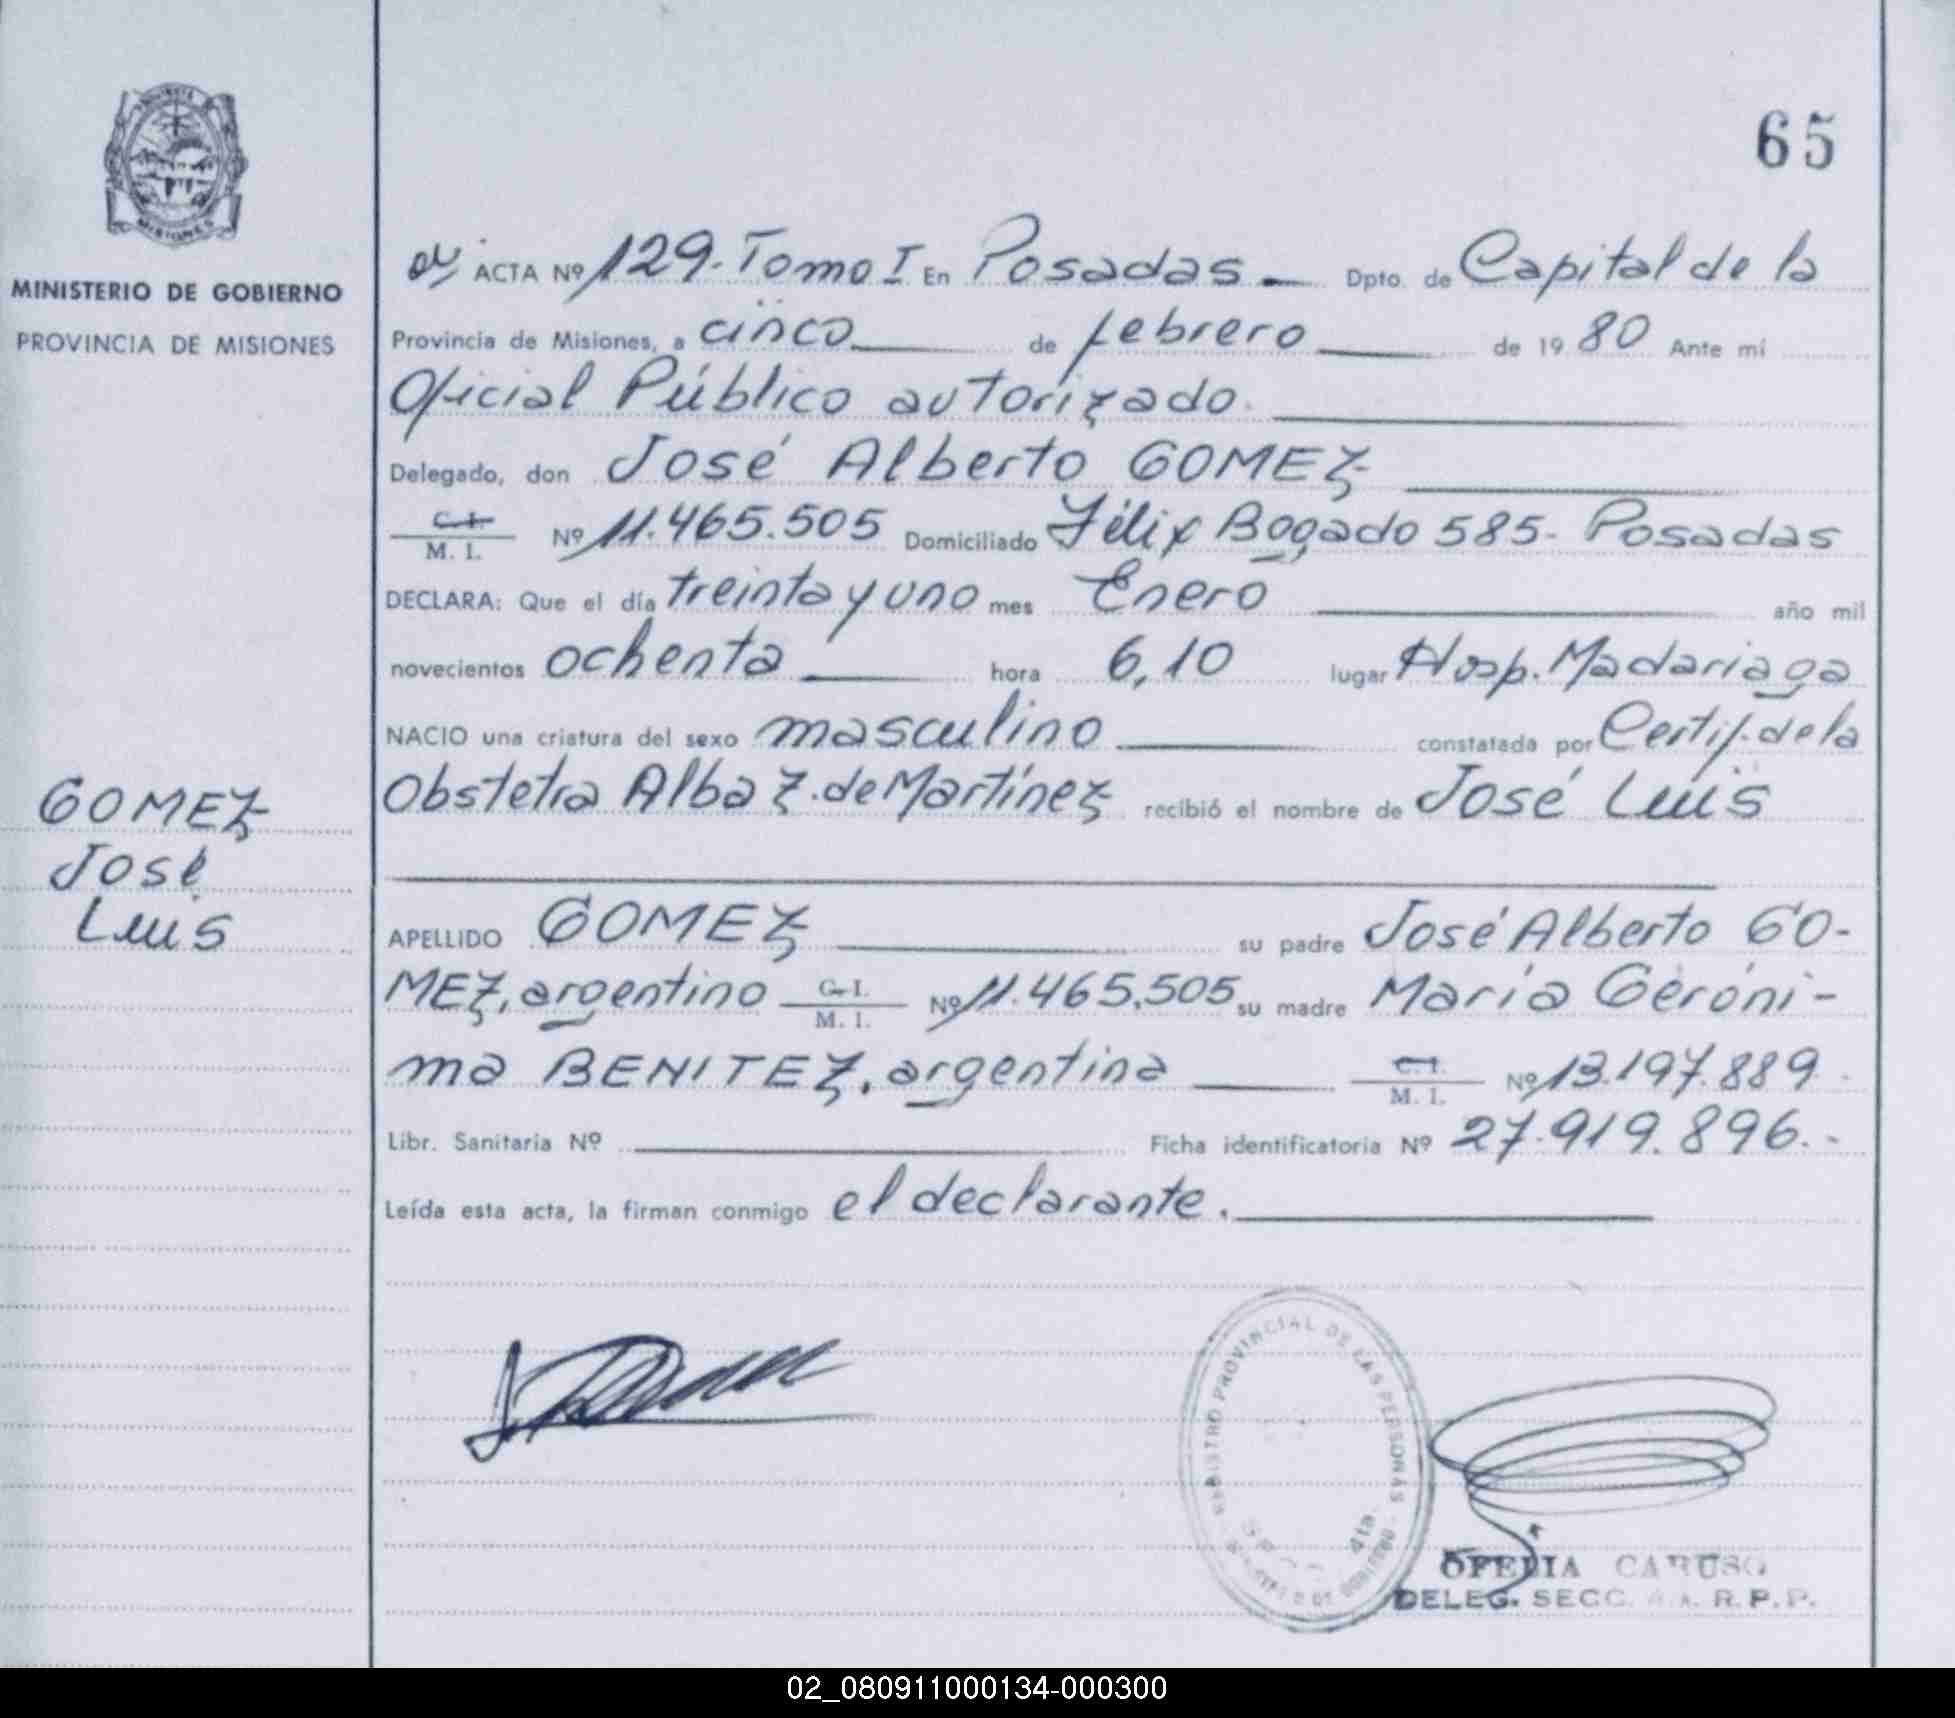 65
PROVINCIA
MISIONES
MINISTERIO DE GOBIERNO
PROVINCIA DE MISIONES
ACTA Nº 129.-Tomo I En Posadas Dpto. de Capital de la
Provincia de Misiones, a cinco de febrero de 19 80 Ante mí
Oficial Público autorizado.
Delegado, don José Alberto GOMEZ
C. I.
M. I. Nº 11.465.505 Domiciliado Félix Bogado 585- Posadas
DECLARA: Que el día treinta y uno mes Enero año mil
novecientos ochenta hora 6,10 lugar Hosp. Madariaga
NACIO una criatura del sexo masculino constatada por Certif. de la
Obstetra Alba Z. de Martínez recibió el nombre de José Luis
GOMEZ
José
Luis
APELLIDO GOMEZ su padre José Alberto GO-
MEZ, argentino C. I. M. I. Nº 11.465,505 su madre María Geróni-
ma BENITEZ, argentina C. I. M. I. Nº 13.197.889
Libr. Sanitaria Nº Ficha identificatoria Nº 27.919.896.-
Leída esta acta, la firman conmigo el declarante.
REGISTRO PROVINCIAL DE LAS PERSONAS
4ta.
OFELIA CARUSO
DELEG. SECC. R. P. P.
02_080911000134-000300